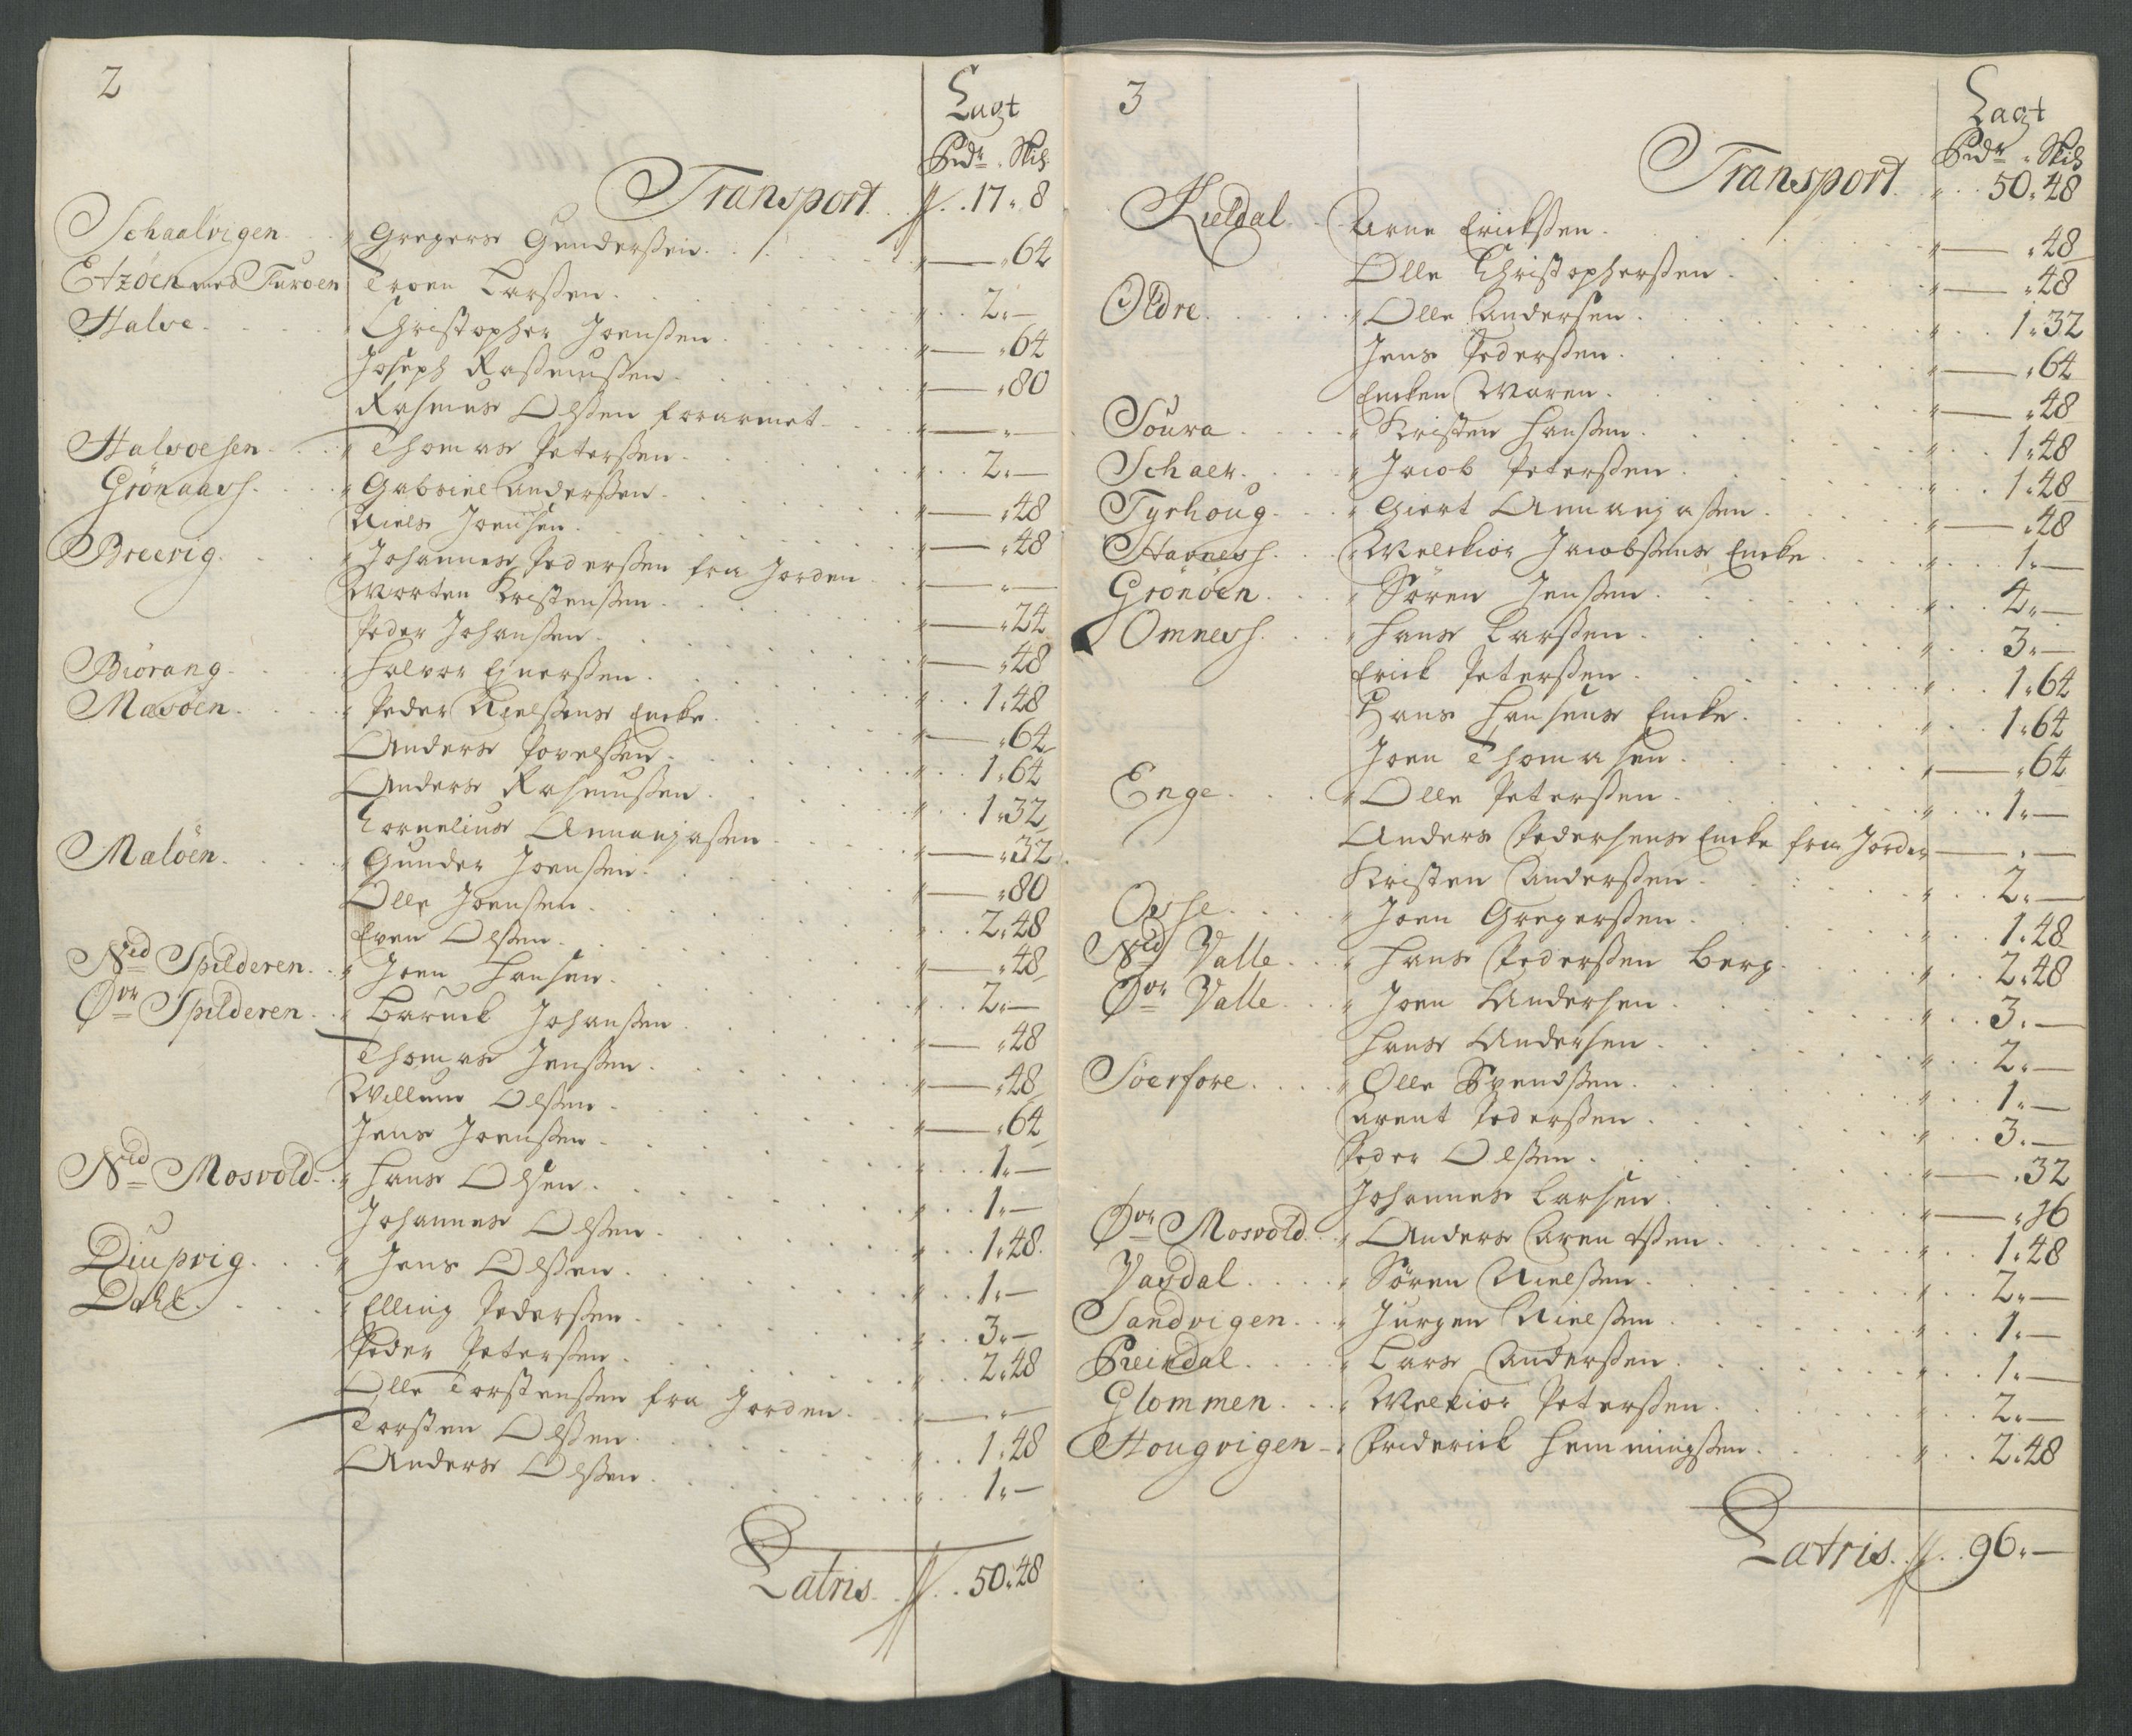 2
Lagt
Rdr. Skil
Transport. . 17. 8
Schaalvigen. . Gregers Gundersen. — 64
Etzöen med Turoen Troen Larßen. . 2. —
Halve. . Christopher Joensen. — 64
Joseph Raßmusßen. — 80
Rasmus Olßen forarmet — —
Halvoesen. . Thomas Peterßen. . 2. —
Grönaas. . Gabriel Anderßen. — 48
Niels Joensen. — 48
Breevig. . Johannes Pederßen fra Jorden — —
Morten Kristenßen. — 24
Peder Johanßen. — 48
Biörang. . Halvor Ejnerßen. . 1. 48
Masöen. . Peder Nielßens Encke. — 64
Anders Povelßen. . 1. 64
Anders Rasmusßen. . 1. 32
Cornelius Annanjasßen — 32
Maløen. . Gunder Joenßen. — 80
Olle Joensen. . 2. 48
Even Olßen. — 48
Nid Spilderen. . Joen Hansen. . 2. —
Øvr Spilderen. . Baruck Johanßen — 48
Thomas Jenßen. — 48
Willum Olßen. — 64
Jens Joenßen. . 1. —
Nid Mosvold. . Hans Olsen. . 1. —
Johannes Olßen. . 1. 48
Diupvig. . Jens Olßen. . 1. —
Dahl. . Elling Pederßen. . 3. —
Peder Peterßen. . 2. 48
Olle Torstenßen fra Jorden. — —
Torsten Olßen. . 1. 48
Anders Olßen. . 1. —
Latris. . 50. 48
3
Lagt
Rdr. Skil
Transport. . 50. 48
Kieldal. . Arne Erickßen. — 48
Olle Christopherßen. — 48
Oldre. . Olle Andersen. . 1. 32
Jens Pederßen. — 64
Encken Maren. — 48
Soura. . Kristen Hanßen. . 1. 48
Schaer. . Jacob Peterßen. . 1. 48
Tyrhoug. . Giert Annanjaßen. — 48
Havnes. . Melckior Jacobßens Encke. . 1. —
Grönöen. . Sören Jenßen. . 4. —
Omnes. . Hans Larßen. . 3. —
Erick Peterßen. . 1. 64
Hans Hansens Encke. . 1. 64
Joen Thomasen. — 64
Enge. . Olle Peterßen. . 1. —
Anders Pedersens Encke fra Jorden — —
Kristen Anderßen. . 2. —
Osse. . Joen Gregerßen. . 1. 48
Nid Valle. . Hans Pederßen Berg. . 2. 48
Øvr Valle. . Joen Andersen. . 3. —
Hans Andersen. . 2. —
Söerfore. . Olle Svendßen. . 1. —
Arent Pederßen. . 3. —
Peder Olßen. — 32
Johannes Larsen. — 16
Øvr Mosvold. . Anders Arentßen. . 1. 48
Vasdal. . Sören Nielßen. . 2. —
Sandvigen. . Jürgen Nielßen. . 1. —
Reindal. . Lars Anderßen. . 1. —
Glommen. . Melkior Peterßen. . 2. —
Hougvigen. . Friderick Hemmingßen. . 2. 48
Latris. . 96. —